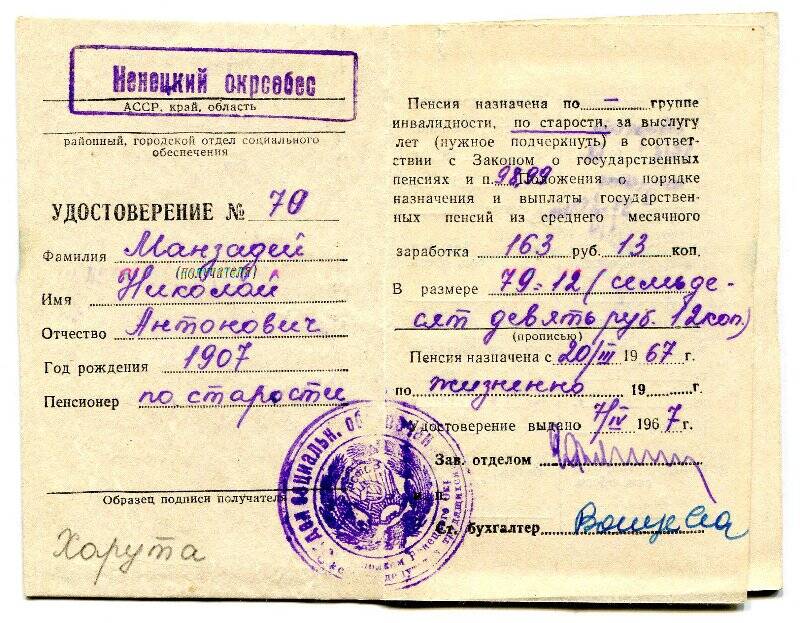 Ненецкий окрсобес
АССР, край, область
районный, городской отдел социального
обеспечения
УДОСТОВЕРЕНИЕ № 70
Фамилия Манзадей
(получателя)
Имя Николай
Отчество Антонович
Год рождения 1907
Пенсионер по старости
Образец подписи получателя
Харута
Пенсия назначена по — группе
инвалидности, по старости, за выслугу
лет (нужное подчеркнуть) в соответ-
ствии с Законом о государственных
пенсиях и п. 98,99 Положения о порядке
назначения и выплаты государствен-
ных пенсий из среднего месячного
заработка 163 руб. 13 коп.
В размере 79=12 (семьде-
сят девять руб. 12 коп.)
(прописью)
Пенсия назначена с 20/III 1967 г.
по жизненно 19 г.
Удостоверение выдано 7/IV 1967 г.
Зав. отделом
М. П.
Ст. бухгалтер